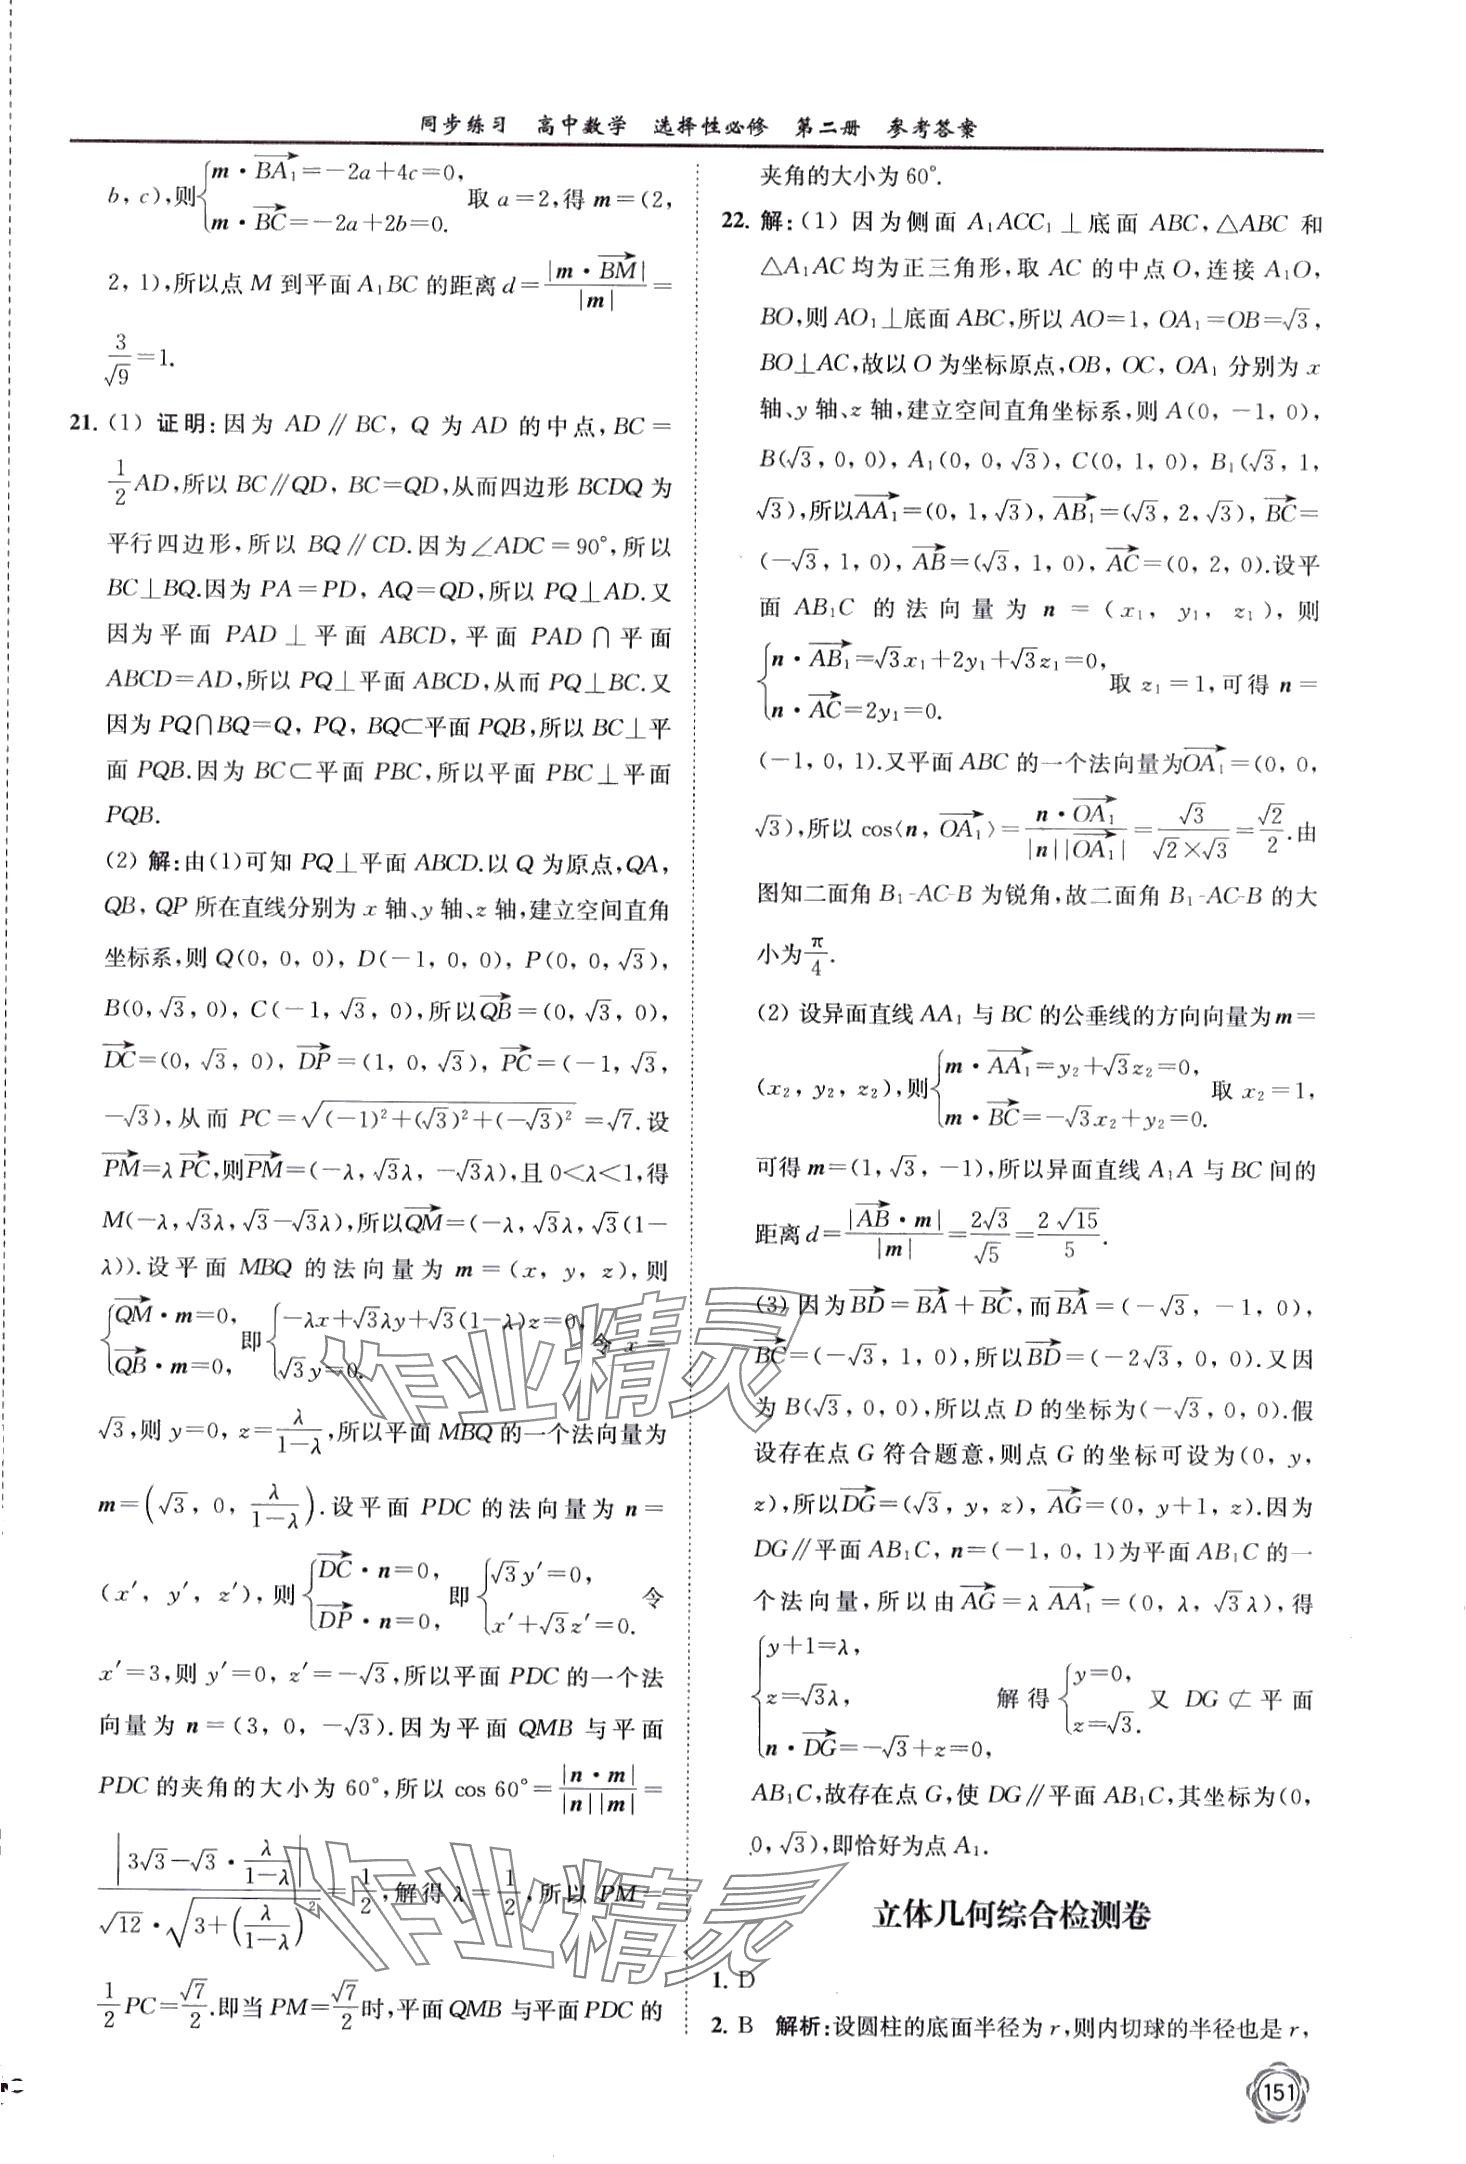 同步练习 高中数学 选择性必修 第二册 参考答案
b, c),则{m·BA₁=-2a+4c=0, m·BC=-2a+2b=0. 取 a=2,得 m=(2,
2, 1),所以点 M 到平面 A₁BC 的距离 d=|m·BM|/|m|=
3/√9=1.
21. (1) 证明:因为 AD∥BC, Q 为 AD 的中点, BC=
1/2AD,所以 BC∥QD, BC=QD,从而四边形 BCDQ 为
平行四边形,所以 BQ∥CD.因为∠ADC=90°,所以
BC⊥BQ.因为 PA=PD, AQ=QD,所以 PQ⊥AD.又
因为平面 PAD⊥平面 ABCD,平面 PAD∩平面
ABCD=AD,所以 PQ⊥平面 ABCD,从而 PQ⊥BC.又
因为 PQ∩BQ=Q, PQ, BQ⊂平面 PQB,所以 BC⊥平
面 PQB.因为 BC⊂平面 PBC,所以平面 PBC⊥平面
PQB.
(2) 解:由(1)可知 PQ⊥平面 ABCD.以 Q 为原点,QA,
QB, QP 所在直线分别为 x 轴、y 轴、z 轴,建立空间直角
坐标系,则 Q(0, 0, 0), D(-1, 0, 0), P(0, 0,√3),
B(0,√3, 0), C(-1,√3, 0),所以QB=(0,√3, 0),
DC=(0,√3, 0), DP=(1, 0,√3), PC=(-1,√3,
-√3),从而 PC=√((-1)²+(√3)²+(-√3)²)=√7.设
PM=λPC,则PM=(-λ,√3λ, -√3λ),且 0<λ<1,得
M(-λ,√3λ,√3-√3λ),所以QM=(-λ,√3λ,√3(1-
λ)).设平面 MBQ 的法向量为 m=(x, y, z),则
{QM·m=0, QB·m=0, 即{-λx+√3λy+√3(1-λ)z=0, √3y=0. 令 x=
√3,则 y=0, z=λ/(1-λ),所以平面 MBQ 的一个法向量为
m=(√3, 0, λ/(1-λ)).设平面 PDC 的法向量为 n=
(x′, y′, z′),则{DC·n=0, DP·n=0, 即{√3y′=0, x′+√3z′=0. 令
x′=3,则 y′=0, z′=-√3,所以平面 PDC 的一个法
向量为 n=(3, 0, -√3).因为平面 QMB 与平面
PDC 的夹角的大小为 60°,所以 cos 60°=|n·m|/(|n||m|)=
|3√3-√3·λ/(1-λ)|/(√12·√(3+(λ/(1-λ))²))=1/2,解得 λ=1/2,所以 PM=
1/2PC=√7/2.即当 PM=√7/2时,平面 QMB 与平面 PDC 的
夹角的大小为 60°.
22. 解:(1) 因为侧面 A₁ACC₁⊥底面 ABC,△ABC 和
△A₁AC 均为正三角形,取 AC 的中点 O,连接 A₁O,
BO,则 AO₁⊥底面 ABC,所以 AO=1, OA₁=OB=√3,
BO⊥AC,故以 O 为坐标原点,OB, OC, OA₁ 分别为 x
轴、y 轴、z 轴,建立空间直角坐标系,则 A(0, -1, 0),
B(√3, 0, 0), A₁(0, 0,√3), C(0, 1, 0), B₁(√3, 1,
√3),所以AA₁=(0, 1,√3), AB₁=(√3, 2,√3), BC=
(-√3, 1, 0), AB=(√3, 1, 0), AC=(0, 2, 0).设平
面 AB₁C 的法向量为 n=(x₁, y₁, z₁),则
{n·AB₁=√3x₁+2y₁+√3z₁=0, n·AC=2y₁=0. 取 z₁=1,可得 n=
(-1, 0, 1).又平面 ABC 的一个法向量为OA₁=(0, 0,
√3),所以 cos⟨n, OA₁⟩=n·OA₁/(|n||OA₁|)=√3/(√2×√3)=√2/2.由
图知二面角 B₁-AC-B 为锐角,故二面角 B₁-AC-B 的大
小为π/4.
(2) 设异面直线 AA₁ 与 BC 的公垂线的方向向量为 m=
(x₂, y₂, z₂),则{m·AA₁=y₂+√3z₂=0, m·BC=-√3x₂+y₂=0. 取 x₂=1,
可得 m=(1,√3, -1),所以异面直线 A₁A 与 BC 间的
距离 d=|AB·m|/|m|=2√3/√5=2√15/5.
(3) 因为BD=BA+BC,而BA=(-√3, -1, 0),
BC=(-√3, 1, 0),所以BD=(-2√3, 0, 0).又因
为 B(√3, 0, 0),所以点 D 的坐标为(-√3, 0, 0).假
设存在点 G 符合题意,则点 G 的坐标可设为(0, y,
z),所以DG=(√3, y, z), AG=(0, y+1, z).因为
DG∥平面 AB₁C, n=(-1, 0, 1)为平面 AB₁C 的一
个法向量,所以由AG=λAA₁=(0, λ,√3λ),得
{y+1=λ, z=√3λ, n·DG=-√3+z=0, 解得{y=0, z=√3. 又 DG⊄平面
AB₁C,故存在点 G,使 DG∥平面 AB₁C,其坐标为(0,
0,√3),即恰好为点 A₁.
立体几何综合检测卷
1. D
2. B 解析:设圆柱的底面半径为 r,则内切球的半径也是 r,
151
作业精灵
作业精灵